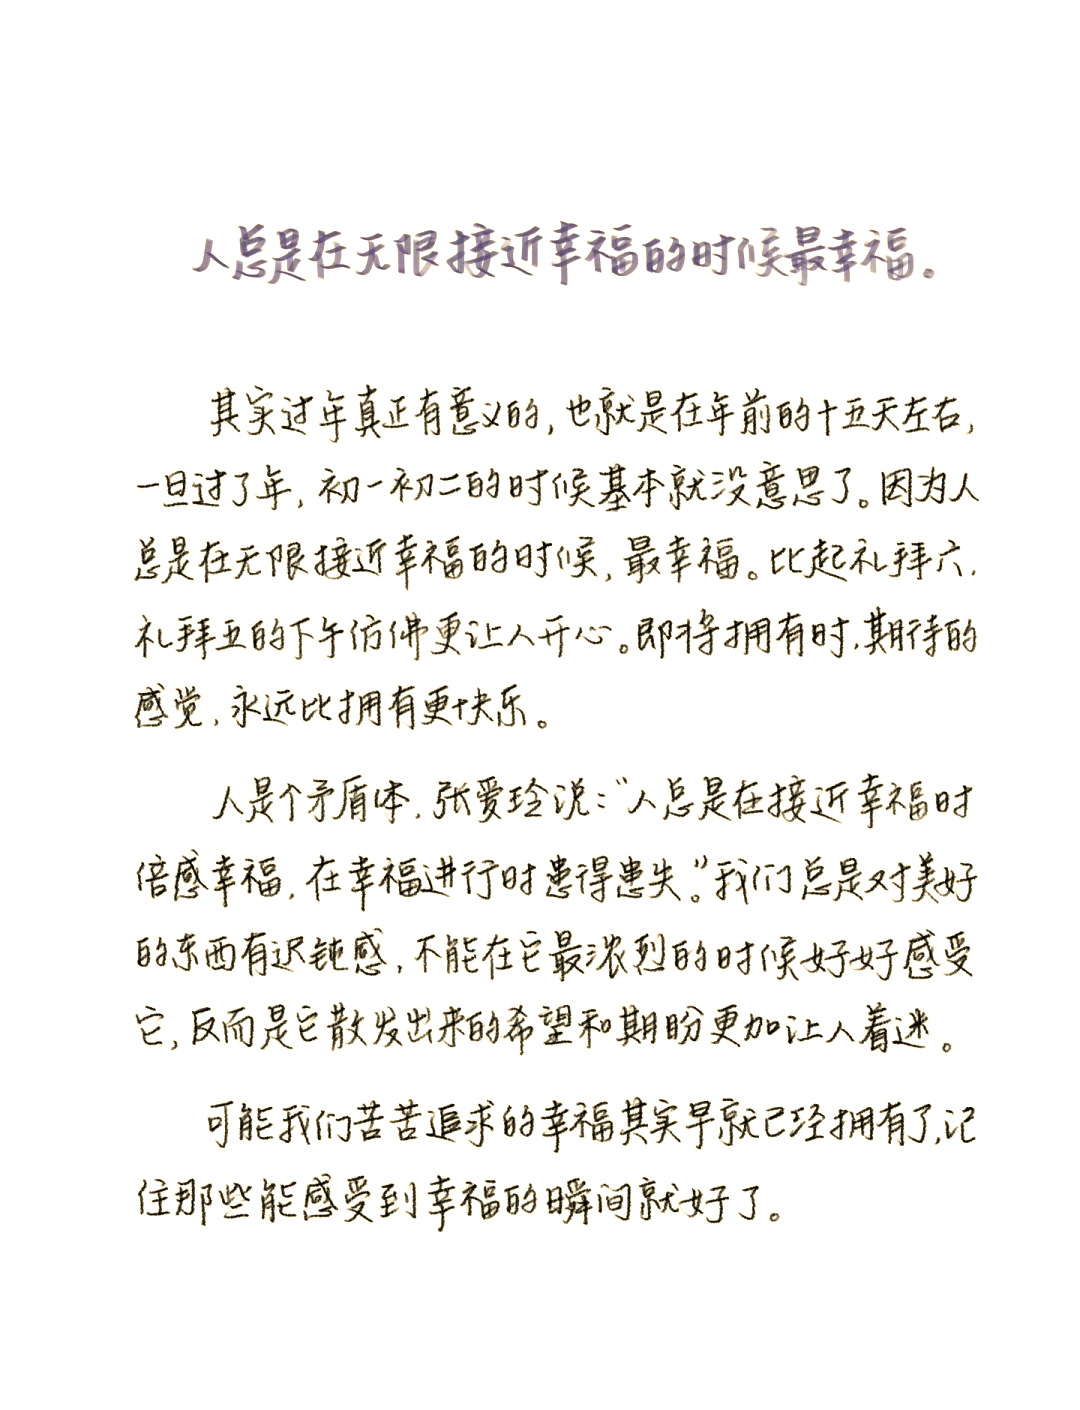 人总是在无限接近幸福的时候最幸福。
其实过年真正有意义的,也就是在年前的十五天左右,
一旦过了年,初一初二的时候基本就没意思了。因为人
总是在无限接近幸福的时候,最幸福。比起礼拜六,
礼拜五的下午仿佛更让人开心。即将拥有时,期待的
感觉,永远比拥有更快乐。
人是个矛盾体,张爱玲说:“人总是在接近幸福时
倍感幸福,在幸福进行时患得患失。”我们总是对美好
的东西有迟钝感,不能在它最浓烈的时候好好感受
它,反而是它散发出来的希望和期盼更加让人着迷。
可能我们苦苦追求的幸福其实早就已经拥有了,记
住那些能感受到幸福的瞬间就好了。